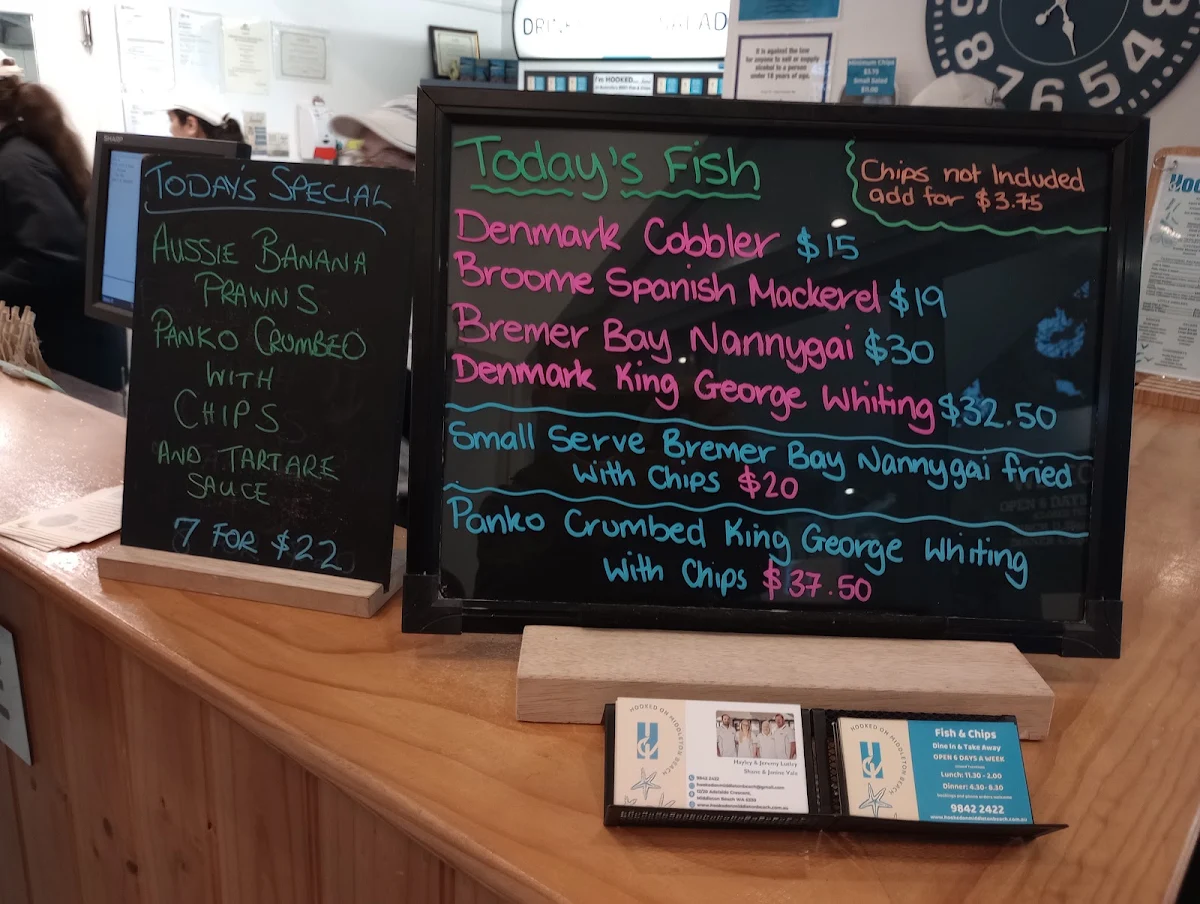 It is against the law
for anyone to sell or supply
alcohol to a person
under 18 years of age.
Minimum Chips
$3.75
Small Salad
I'm HOOKED...
8
7
6
5
4
SHARP
TODAY'S SPECIAL
AUSSIE BANANA
PRAWNS
PANKO CRUMBED
WITH
CHIPS
AND TARTARE
SAUCE
7 FOR $22
Today's Fish
Chips not Included
add for $3.75
Denmark Cobbler $15
Broome Spanish Mackerel $19
Bremer Bay Nannygai $30
Denmark King George Whiting $32.50
Small Serve Bremer Bay Nannygai fried
with Chips $20
Panko Crumbed King George Whiting
with Chips $37.50
HOOKED ON MIDDLETON BEACH
9842 2422
hookedonmiddletonbeach@gmail.com
Middleton Beach WA 6330
www.hookedonmiddletonbeach.com.au
HOOKED ON MIDDLETON BEACH
Fish & Chips
Dine In & Take Away
OPEN 6 DAYS A WEEK
Lunch: 11.30 - 2.00
Dinner: 4.30 - 8.30
9842 2422
www.hookedonmiddletonbeach.com.au